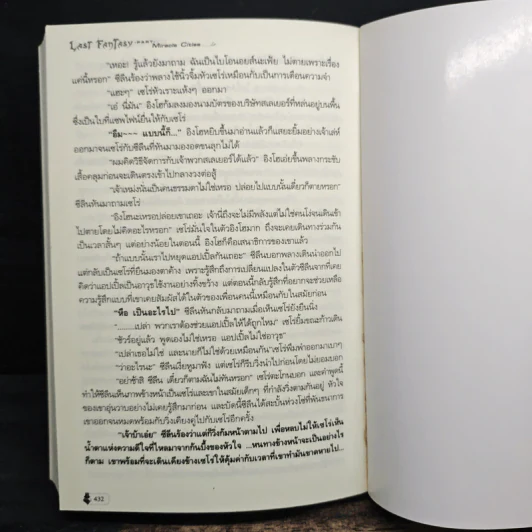 LAST FANTASY PART Miracle Cities
"เหอะ! รู้แล้วยังมาถาม ฉันเป็นไบโอนอยส์นะเฟ้ย ไม่ตายเพราะเรื่อง
แค่นี้หรอก" ซีลีนร้องว่าพลางใช้นิ้วจิ้มหัวเซโร่เหมือนกับเป็นการเตือนความจำ
"แฮะๆ" เซโร่หัวเราะแห้งๆ ออกมา
"เอ๋ นี่มัน" อิงโฮก้มลงมองนามบัตรของบริษัทสเลเยอร์ที่หล่นอยู่บนพื้น
ซึ่งเป็นใบที่แซฟไฟน์ยื่นให้กับเซโร่
"อืม~~~ แบบนี้ก็..." อิงโฮหยิบขึ้นมาอ่านแล้วก็แสยะยิ้มอย่างเจ้าเล่ห์
ออกมาจนเซโร่กับซีลีนที่หันมามองอดขนลุกไม่ได้
"ผมคิดวิธีจัดการกับเจ้าพวกสเลเยอร์ได้แล้ว" อิงโฮเอ่ยขึ้นพลางกระชับ
เสื้อคลุมก่อนจะเดินตรงเข้าไปกลางวงต่อสู้
"เจ้าแหม่งนั่นเป็นคนธรรมดาไม่ใช่เหรอ ปล่อยไปแบบนั้นเดี๋ยวก็ตายหรอก"
ซีลีนหันมาถามเซโร่
"อิงโฮนะเหรอปล่อยเขาเถอะ เจ้านี่ถึงจะไม่มีพลังแต่ไม่ใช่คนโง่จนเดินเข้า
ไปตายโดยไม่คิดอะไรหรอก" เซโร่มั่นใจในตัวอิงโฮมาก ถึงจะเคยเดินทางร่วมกัน
เป็นเวลาสั้นๆ แต่อย่างน้อยในตอนนี้ อิงโฮก็คือเสนาธิการของเขาแล้ว
"ถ้าแบบนั้นเราไปหยุดแอปเปิ้ลกันเถอะ" ซีลีนบอกพลางเดินนำออกไป
แต่กลับเป็นเซโร่ที่ยืนมองตาค้าง เพราะรู้สึกถึงการเปลี่ยนแปลงในตัวซีลีนจากที่เคย
คิดว่าแอปเปิ้ลเป็นอาวุธใช้งานอย่างทิ้งขว้าง แต่ตอนนี้กลับรู้สึกที่อยากจะช่วยเหลือ
ความรู้สึกแบบที่เขาเคยสัมผัสได้ในตัวของเพื่อนคนนี้เหมือนกับในสมัยก่อน
"หือ เป็นอะไรไป" ซีลีนหันกลับมาถามเมื่อเห็นเซโร่ยังยืนนิ่ง
".......เปล่า พวกเราต้องช่วยแอปเปิ้ลให้ได้ถูกไหม" เซโร่ยิ้มขณะก้าวเดิน
"ชัวร์อยู่แล้ว พูดเองไม่ใช่เหรอ แอปเปิ้ลไม่ใช่อาวุธ"
"เปล่าเธอไม่ใช่ และนายก็ไม่ใช่ด้วยเหมือนกัน"เซโร่พึมพำออกมาเบาๆ
"ว่าอะไรนะ" ซีลีนเงี่ยหูมาฟัง แต่เซโร่ก็รีบวิ่งนำไปก่อนโดยไม่ยอมบอก
"อย่าช้าสิ ซีลีน เดี๋ยวก็ตามฉันไม่ทันหรอก" เซโร่ตะโกนบอก และคำพูดนี้
ทำให้ซีลีนเห็นภาพข้างหน้าเป็นเซโร่และเขาในสมัยเด็กๆ ที่กำลังวิ่งตามกันอยู่ หัวใจ
ของเขาอุ่นวาบอย่างไม่เคยรู้สึกมาก่อน และบัดนี้ซีลีนได้สะบั้นห่วงโซ่ที่พันธนาการ
เขาออกจนหมดพร้อมกับวิ่งเคียงคู่ไปกับเซโร่อีกครั้ง
"เจ้าบ้าเอ๋ย" ซีลีนร้องว่าแต่ก็วิ่งก้มหน้าตามไป เพื่อหลบไม่ให้เซโร่เห็น
น้ำตาแห่งความดีใจที่ไหลมาจากก้นบึ้งของหัวใจ ...หนทางข้างหน้าจะเป็นอย่างไร
ก็ตาม เขาพร้อมที่จะเดินเคียงข้างเซโร่ ให้คุ้มค่ากับเวลาที่เขาทำมันขาดหายไป...
432